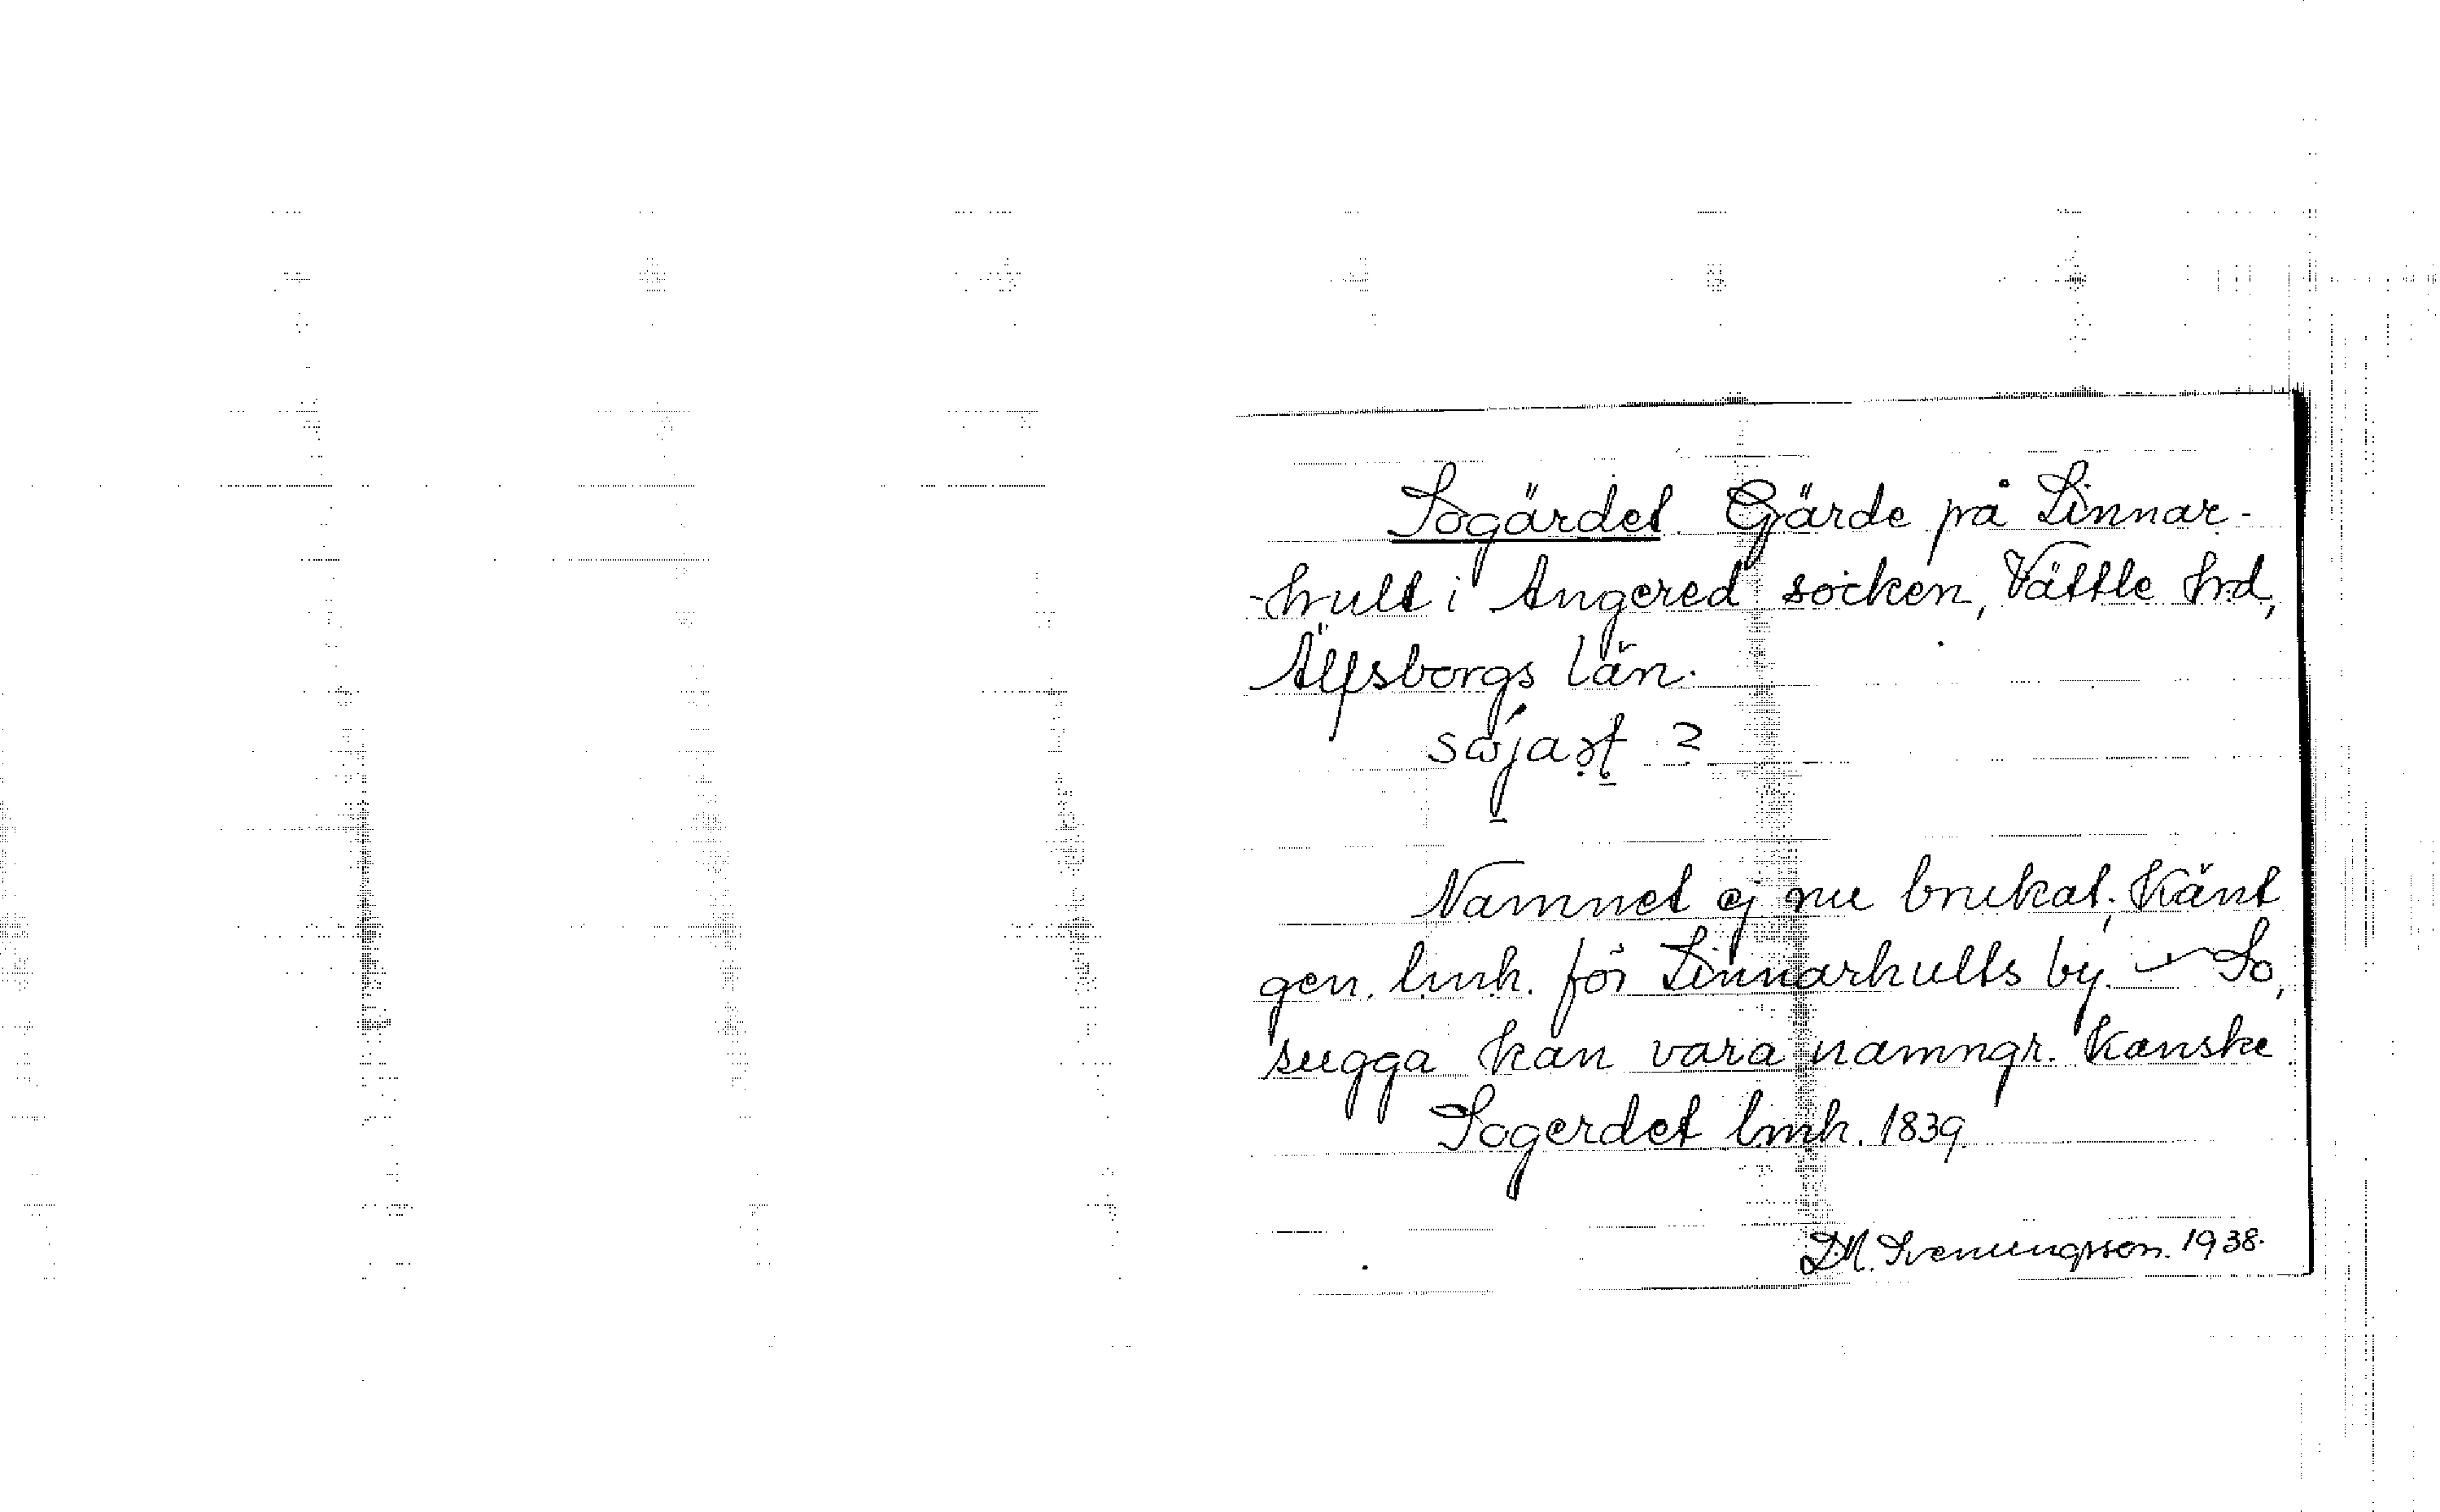 Sogärdet. Gärde på Linnar-
-hult i Angered socken, Vättle hrd,
Älfsborgs län.
Namnet ej nu brukat; känt
gen. lmh. för Linnarhults by. So,
sugga kan vara namngr. kanske
Sogerdet lmh. 1839.
D.A. Svenungsson. 1938.